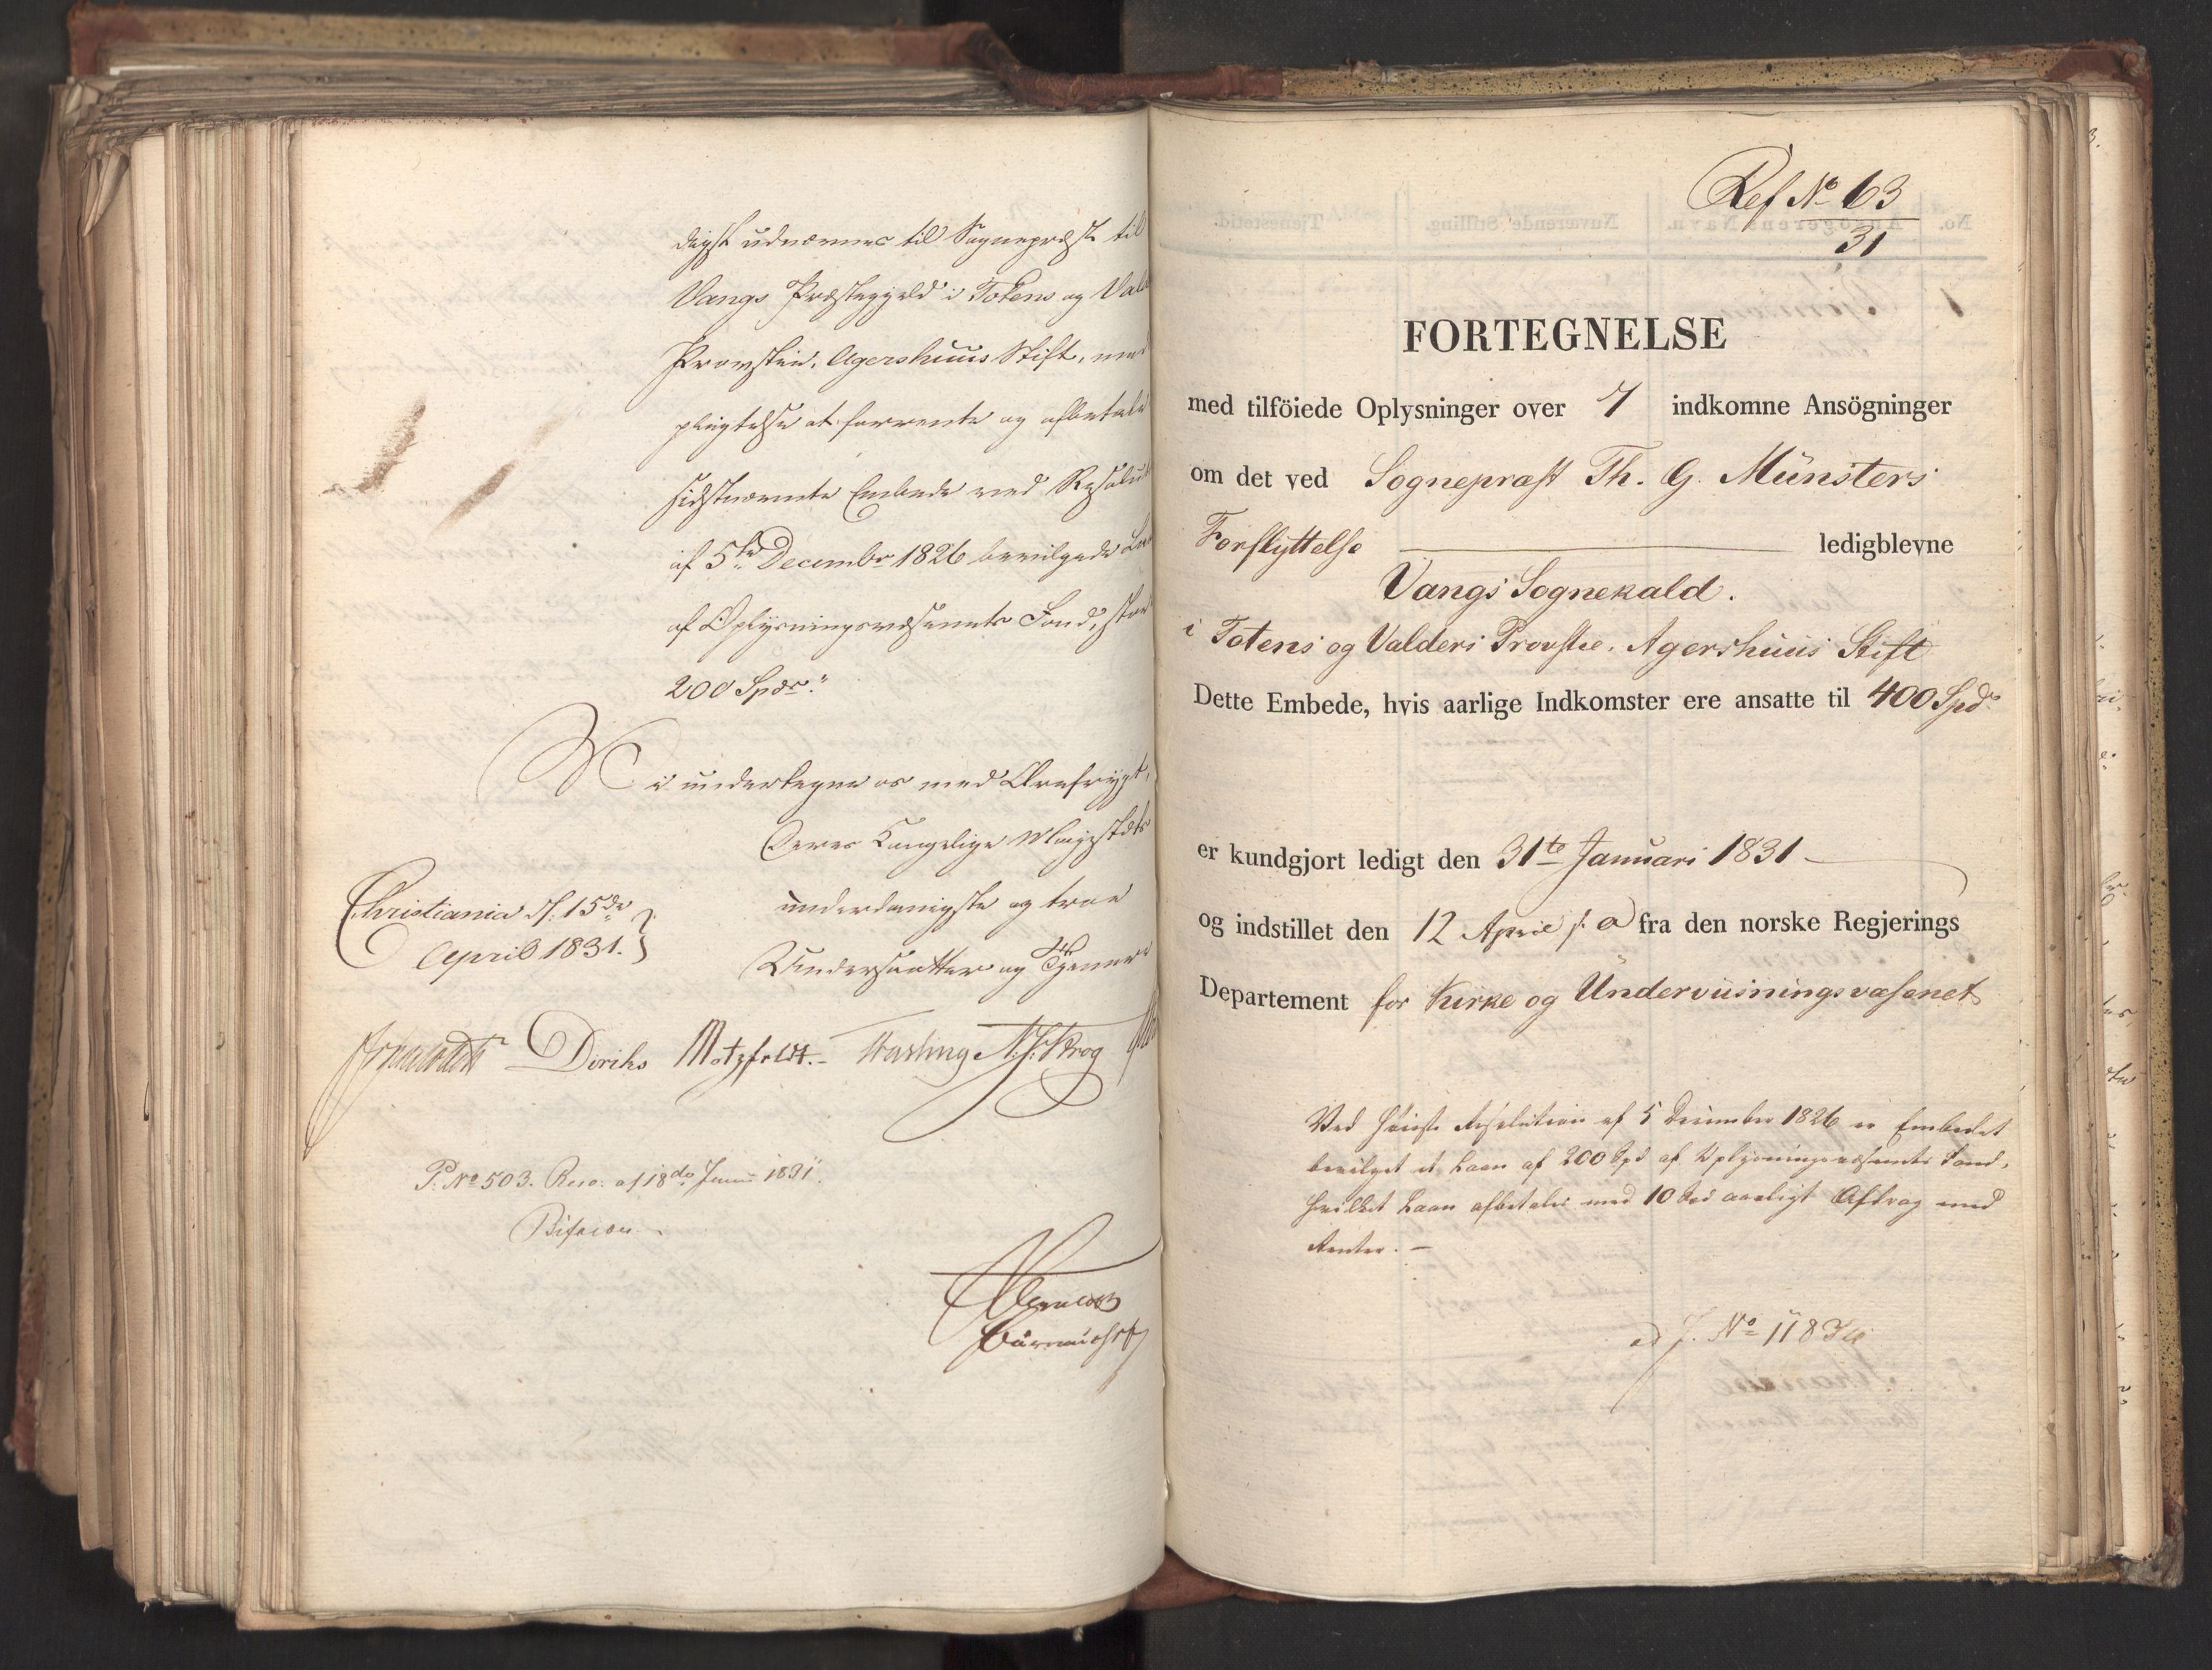 digst udnævnes til Sognepræst til
Vangs Præstegjeld i Totens og Vald
Provstie, Agershuus Stift, med
pligtelse at forrente og afbetale
sidstnævnte Embede ved Resolut
af 5te December 1826 bevilgede Laa
af Oplysningsvæsenets Fond, stor
200 Spdr."
Vi undertegne os med Ærefrygt,
Deres Kongelige Majestæts
Christiania d. 15de
April 1831.
underdanigste og troe
Undersaatter og Tjenere
Diriks Motzfeldt. N. J. Krog
P. No 503. Reso. af 18de 1831.
Ref No 63
31
FORTEGNELSE
med tilföiede Oplysninger over 7 indkomne Ansögninger
om det ved Sognepræst Th. G. Münsters
Forflyttelse ledigblevne
Vangs Sognekald.
i Totens og Valders Provstie. Agershuus Stift
Dette Embede, hvis aarlige Indkomster ere ansatte til 400 Spd
er kundgjort ledigt den 31te Januari 1831
og indstillet den 12 April s. a fra den norske Regjerings
Departement for Kirke og Underviisningsvæsenet
Ved høieste Resolution af 5 December 1826 er Embedet
bevilget et Laan af 200 Spd af Oplysningsvæsenets Fond,
hvilket Laan afbetales med 10 Spd aarligt Afdrag med
Renter. —
ad J. No 1183